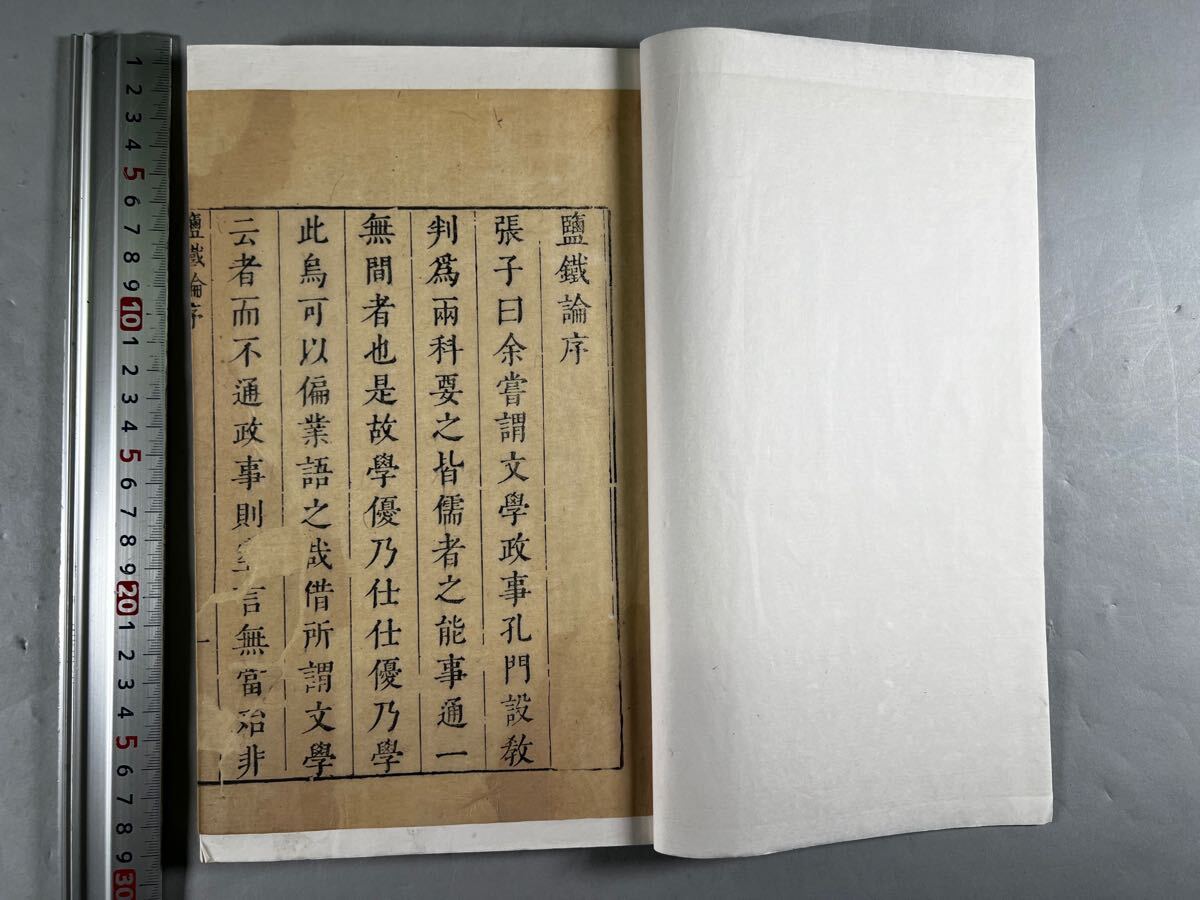 鹽鐵論序
張子曰余嘗謂文學政事孔門設教
判爲兩科要之皆儒者之能事通一
無間者也是故學優乃仕仕優乃學
此烏可以偏業語之哉借所謂文學
云者而不通政事則空言無當治非
鹽鐵論序
一
1 2 3 4 5 6 7 8 9 10 1 2 3 4 5 6 7 8 9 20 1 2 3 4 5 6 7 8 9 30